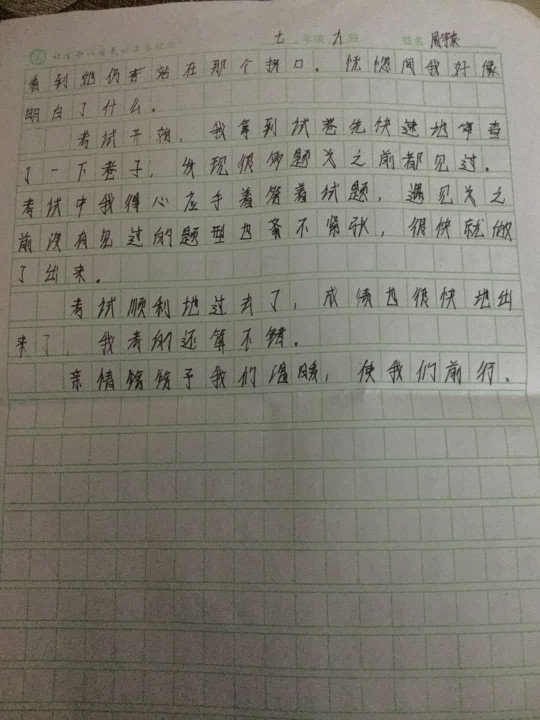 七 年级 九 班 姓名 周宇宸
看到她仍旧站在那个拐口。恍惚间我好像
明白了什么。
考试开始，我拿到试卷先快速地审查
了一下卷子，发现很多题关之前都见过。
考试中我得心应手着答着试题，遇见关之
前没有见过的题型也奈不紧张，很快就做
了出来。
考试顺利地过去了，成绩也很快地出
来了，我考的还算不错。
亲情给给予我们温暖，使我们前行。